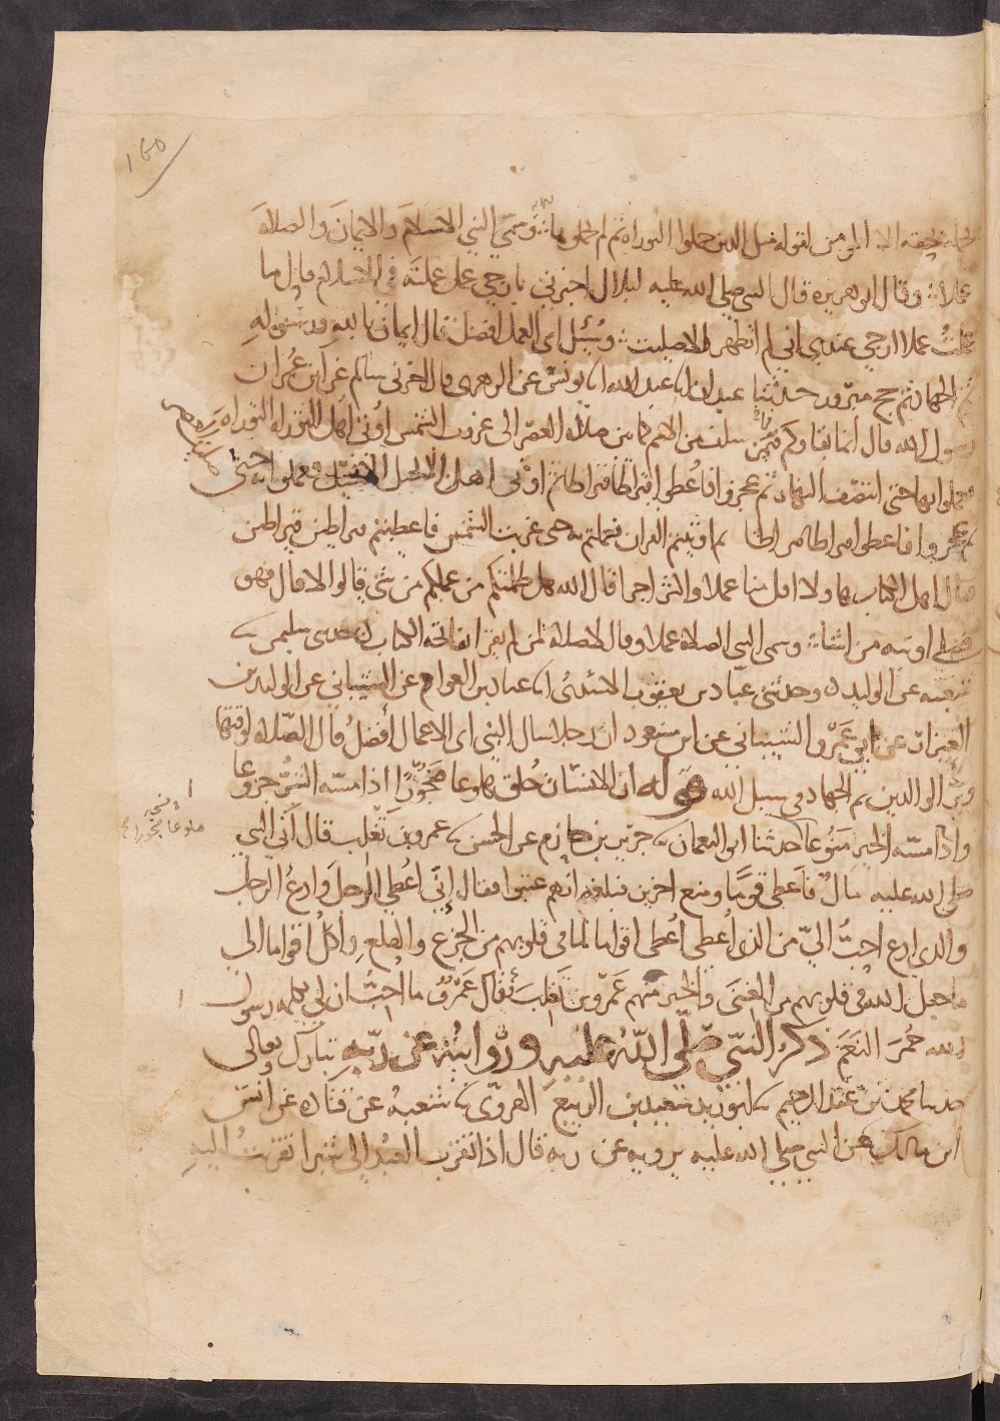 160
يحمله بحقه الا المؤمن لقوله مثل الذين حملوا التوراة ثم لم يحملوها وسمى النبي الاسلامَ والايمانَ والصلاةَ
عملا وقال ابو هريره قال النبي صلى الله عليه لبلال اخبرني بارجى عمل عملته في الاسلام قال ما
عملتُ عملا ارجى عندي اني لم اتطهر الا صليت وسُئِل اى العمل افضل قال ايمان بالله ورسوله
ثم الجهاد ثم حج مبرور حدثنا عبدان انا عبد الله انا يونس عن الزهرى قال اخبرني سالم عن ابن عُمر ان
رسول الله قال انما بقاوكم فيمن سلف من الامم كما بين صلاة العصر الى غروب الشمس اوتي اهل التوراه التوراه
فعملوا بها حتى انتصف النهار ثم عجزوا فاعطوا قيراطا قيراطا ثم اوتي اهل الانجيل الانجيل فعملوا به حتى
ثم عجزوا فاعطوا قيراطا قيراطا ثم اوتيتم القران فعملتم به حتى غربت الشمس فاعطيتم قيراطين قيراطين
فقال اهل الكتاب هاولا اقل منا عملا واكثر اجرا قال الله هل ظلمتكم من عملكم من شي قالوا لا قال فهو
فضلي اوتيه من اشا وسمى النبي الصلاة عملا وقال لا صلاة لمن لم يقرا بفاتحه الكتاب حدثني سليمن نا
شعبه عن الوليد وحدثني عباد بن يعقوب الاسدى انا عباد بن العوام عن الشيباني عن الوليد بن
العيزار عن ابي عَمْرو الشيباني عن ابن مسعود ان رجلا سال النبي اى الاعمال أفضلُ قال الصّلاه لوقتها
وبرّ الوالدين ثم الجهاد في سبيل الله قوله ان الانسان خُلق هلوعا ضجُورًا اذا مسّه الشرُّ جزوعا
هلوعا ضجورا
واذا مسّه الخير مَنُوعا حدثنا ابو النعمان نا جرير بن حازم عن الحسن نا عمرو بن تغلب قال اتى النبي
صلى الله عليه مالٌ فاعطى قومًا ومنع اخرين فبلغه انهم عتبوا فقال إنّي اُعطي الرجل وادعُ الرجل
والذى ادع احبُّ اليّ من الذى اُعطى اُعطى اقواما لما في قلوبهم من الجزع والهلع واكلُ اقواما الى
ما جعل الله في قلوبهم من الغنى والخير منهم عَمرو بن تغلبَ فقال عَمْرٌو ما احبُّ ان لي بكلمه رسول
الله حُمرَ النعَمْ ذكرُ النبّي صَلّى اللّه عليه ورِوايتُهُ عن ربّه تبارك وتعالى
حدثنا محمد بن عبد الرحيم نا ابو زيد سعيد بن الربيع الهروى نا شعبه عن قتاده عن انس
ابن مالك عن النبي صلى الله عليه يرويه عن ربه قال اذا تقرب العبدُ الى شبرا تقربتُ اليهِ